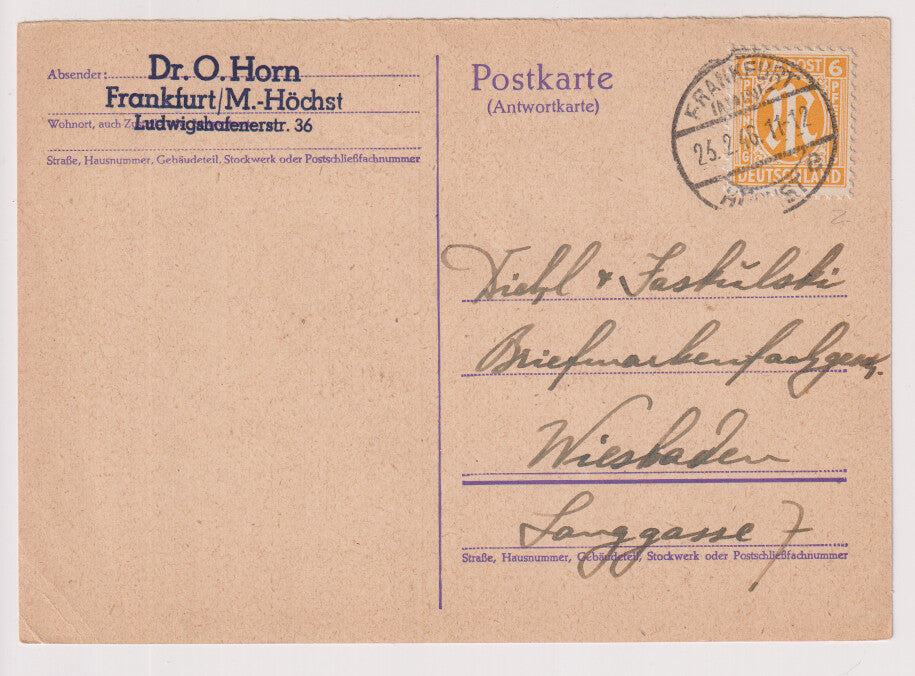 Absender:
Dr. O. Horn
Frankfurt/M.-Höchst
Wohnort, auch
Ludwigshafenerstr. 36
Straße, Hausnummer, Gebäudeteil, Stockwerk oder Postschließfachnummer
Postkarte
(Antwortkarte)
FRANKFURT
(MAIN)
25.2.46. 11-12
HÖCHST
POST 6
DEUTSCHLAND
Diehl + Jaskulski
Briefmarkenfachgesch.
Wiesbaden
Langgasse 7
Straße, Hausnummer, Gebäudeteil, Stockwerk oder Postschließfachnummer